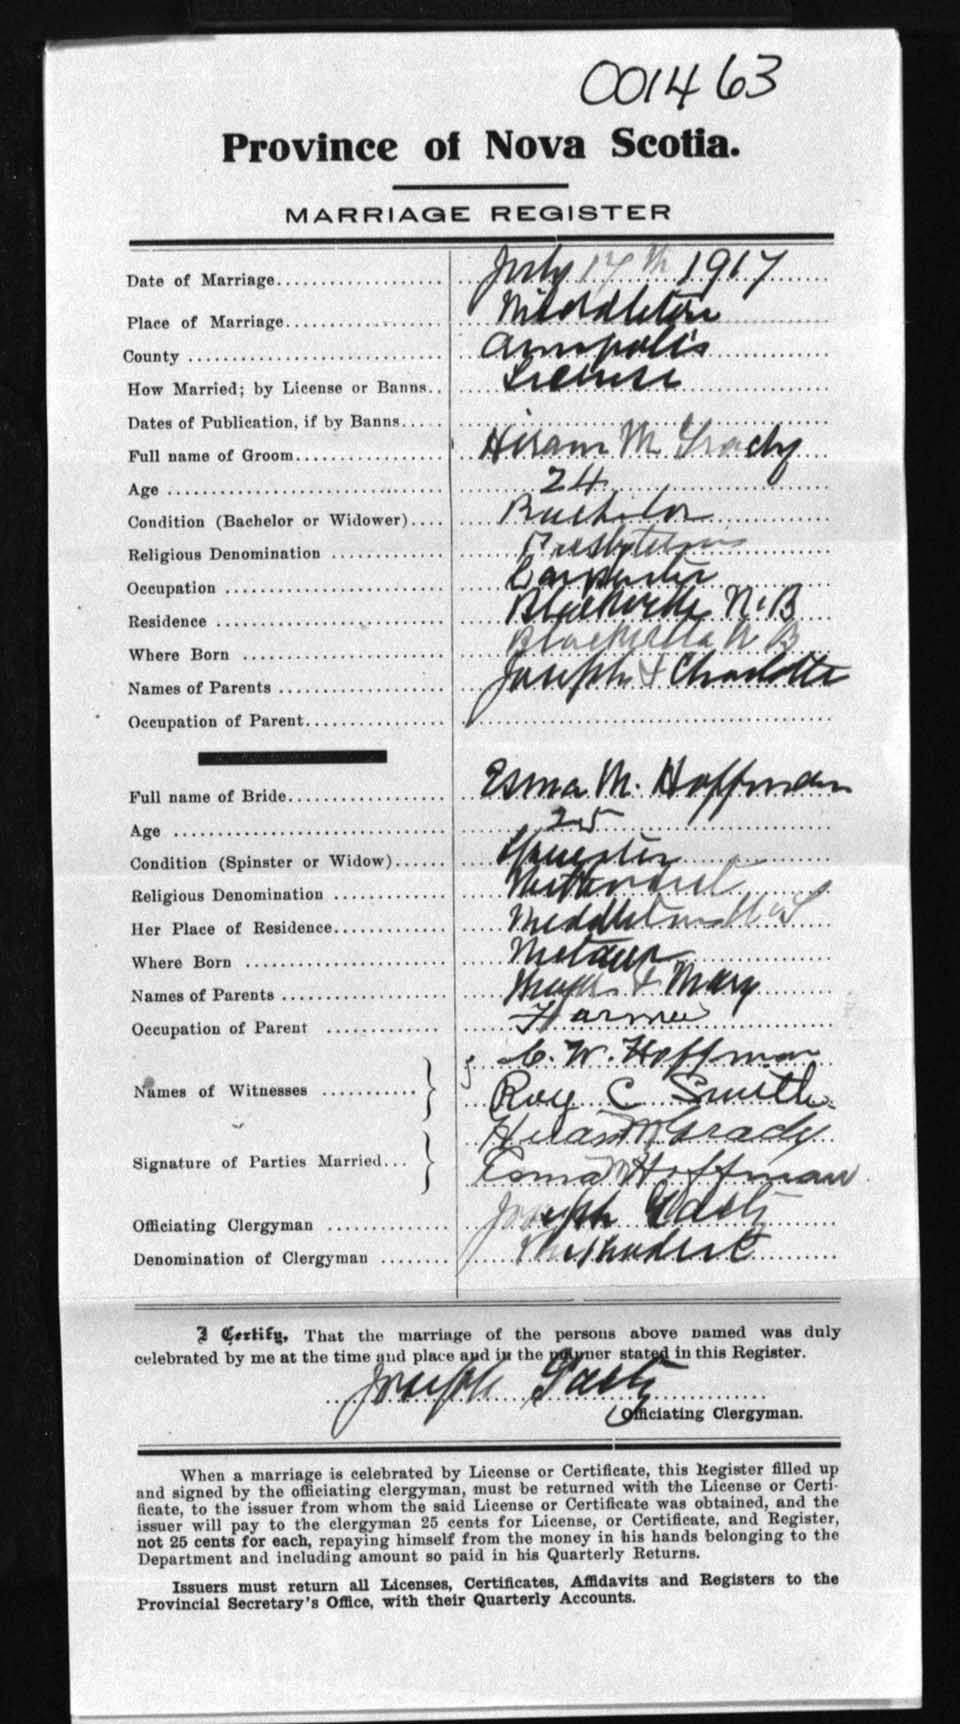 001463
Province of Nova Scotia.
MARRIAGE REGISTER
Date of Marriage July 17th 1917
Place of Marriage Middleton
County Annapolis
How Married; by License or Banns License
Dates of Publication, if by Banns
Full name of Groom Hiram M Grady
Age 24
Condition (Bachelor or Widower) Bachelor
Religious Denomination Presbyterian
Occupation Carpenter
Residence Blackville N.B
Where Born Blackville N B
Names of Parents Joseph & Charlotte
Occupation of Parent
Full name of Bride Esma M. Hoffman
Age 25
Condition (Spinster or Widow) Spinster
Religious Denomination Methodist
Her Place of Residence Middleton N S
Where Born
Names of Parents & Mary
Occupation of Parent Farmer
C. W. Hoffman
Names of Witnesses
Roy C Smith
Hiram M Grady
Signature of Parties Married
Esma M Hoffman
Officiating Clergyman Joseph Gaetz
Denomination of Clergyman Methodist
I Certify, That the marriage of the persons above named was duly
celebrated by me at the time and place and in the manner stated in this Register.
Joseph Gaetz
Officiating Clergyman.
When a marriage is celebrated by License or Certificate, this Register filled up
and signed by the officiating clergyman, must be returned with the License or Certi-
ficate, to the issuer from whom the said License or Certificate was obtained, and the
issuer will pay to the clergyman 25 cents for License, or Certificate, and Register,
not 25 cents for each, repaying himself from the money in his hands belonging to the
Department and including amount so paid in his Quarterly Returns.
Issuers must return all Licenses, Certificates, Affidavits and Registers to the
Provincial Secretary's Office, with their Quarterly Accounts.